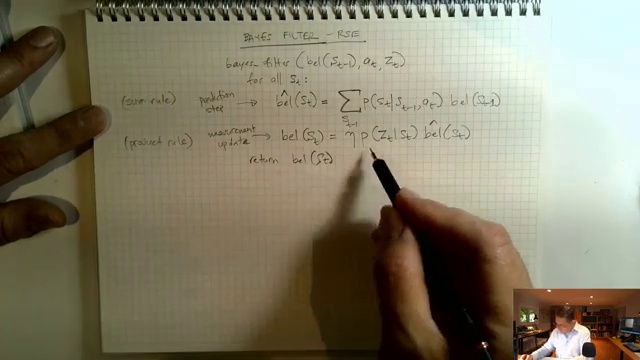 BAYES FILTER - RSE
bayes filter (bel(s_{t-1}), a_t, z_t)
for all s_t:
(sum rule) prediction step → bel̂(s_t) = ∑_{s_{t-1}} p(s_t|s_{t-1}, a_t) bel(s_{t-1})
(product rule) measurement update → bel(s_t) = η p(z_t|s_t) bel̂(s_t)
return bel(s_t)